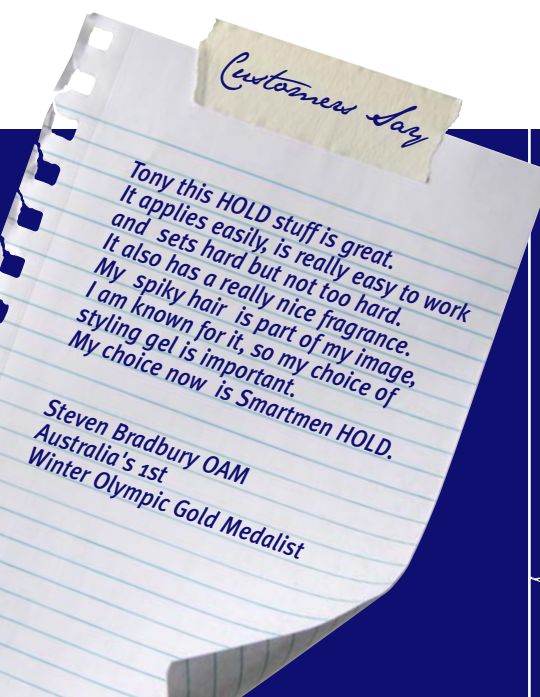 Customers Say
Tony this HOLD stuff is great.
It applies easily, is really easy to work
and sets hard but not too hard.
It also has a really nice fragrance.
My spiky hair is part of my image,
I am known for it, so my choice of
styling gel is important.
My choice now is Smartmen HOLD.
Steven Bradbury OAM
Australia's 1st
Winter Olympic Gold Medalist